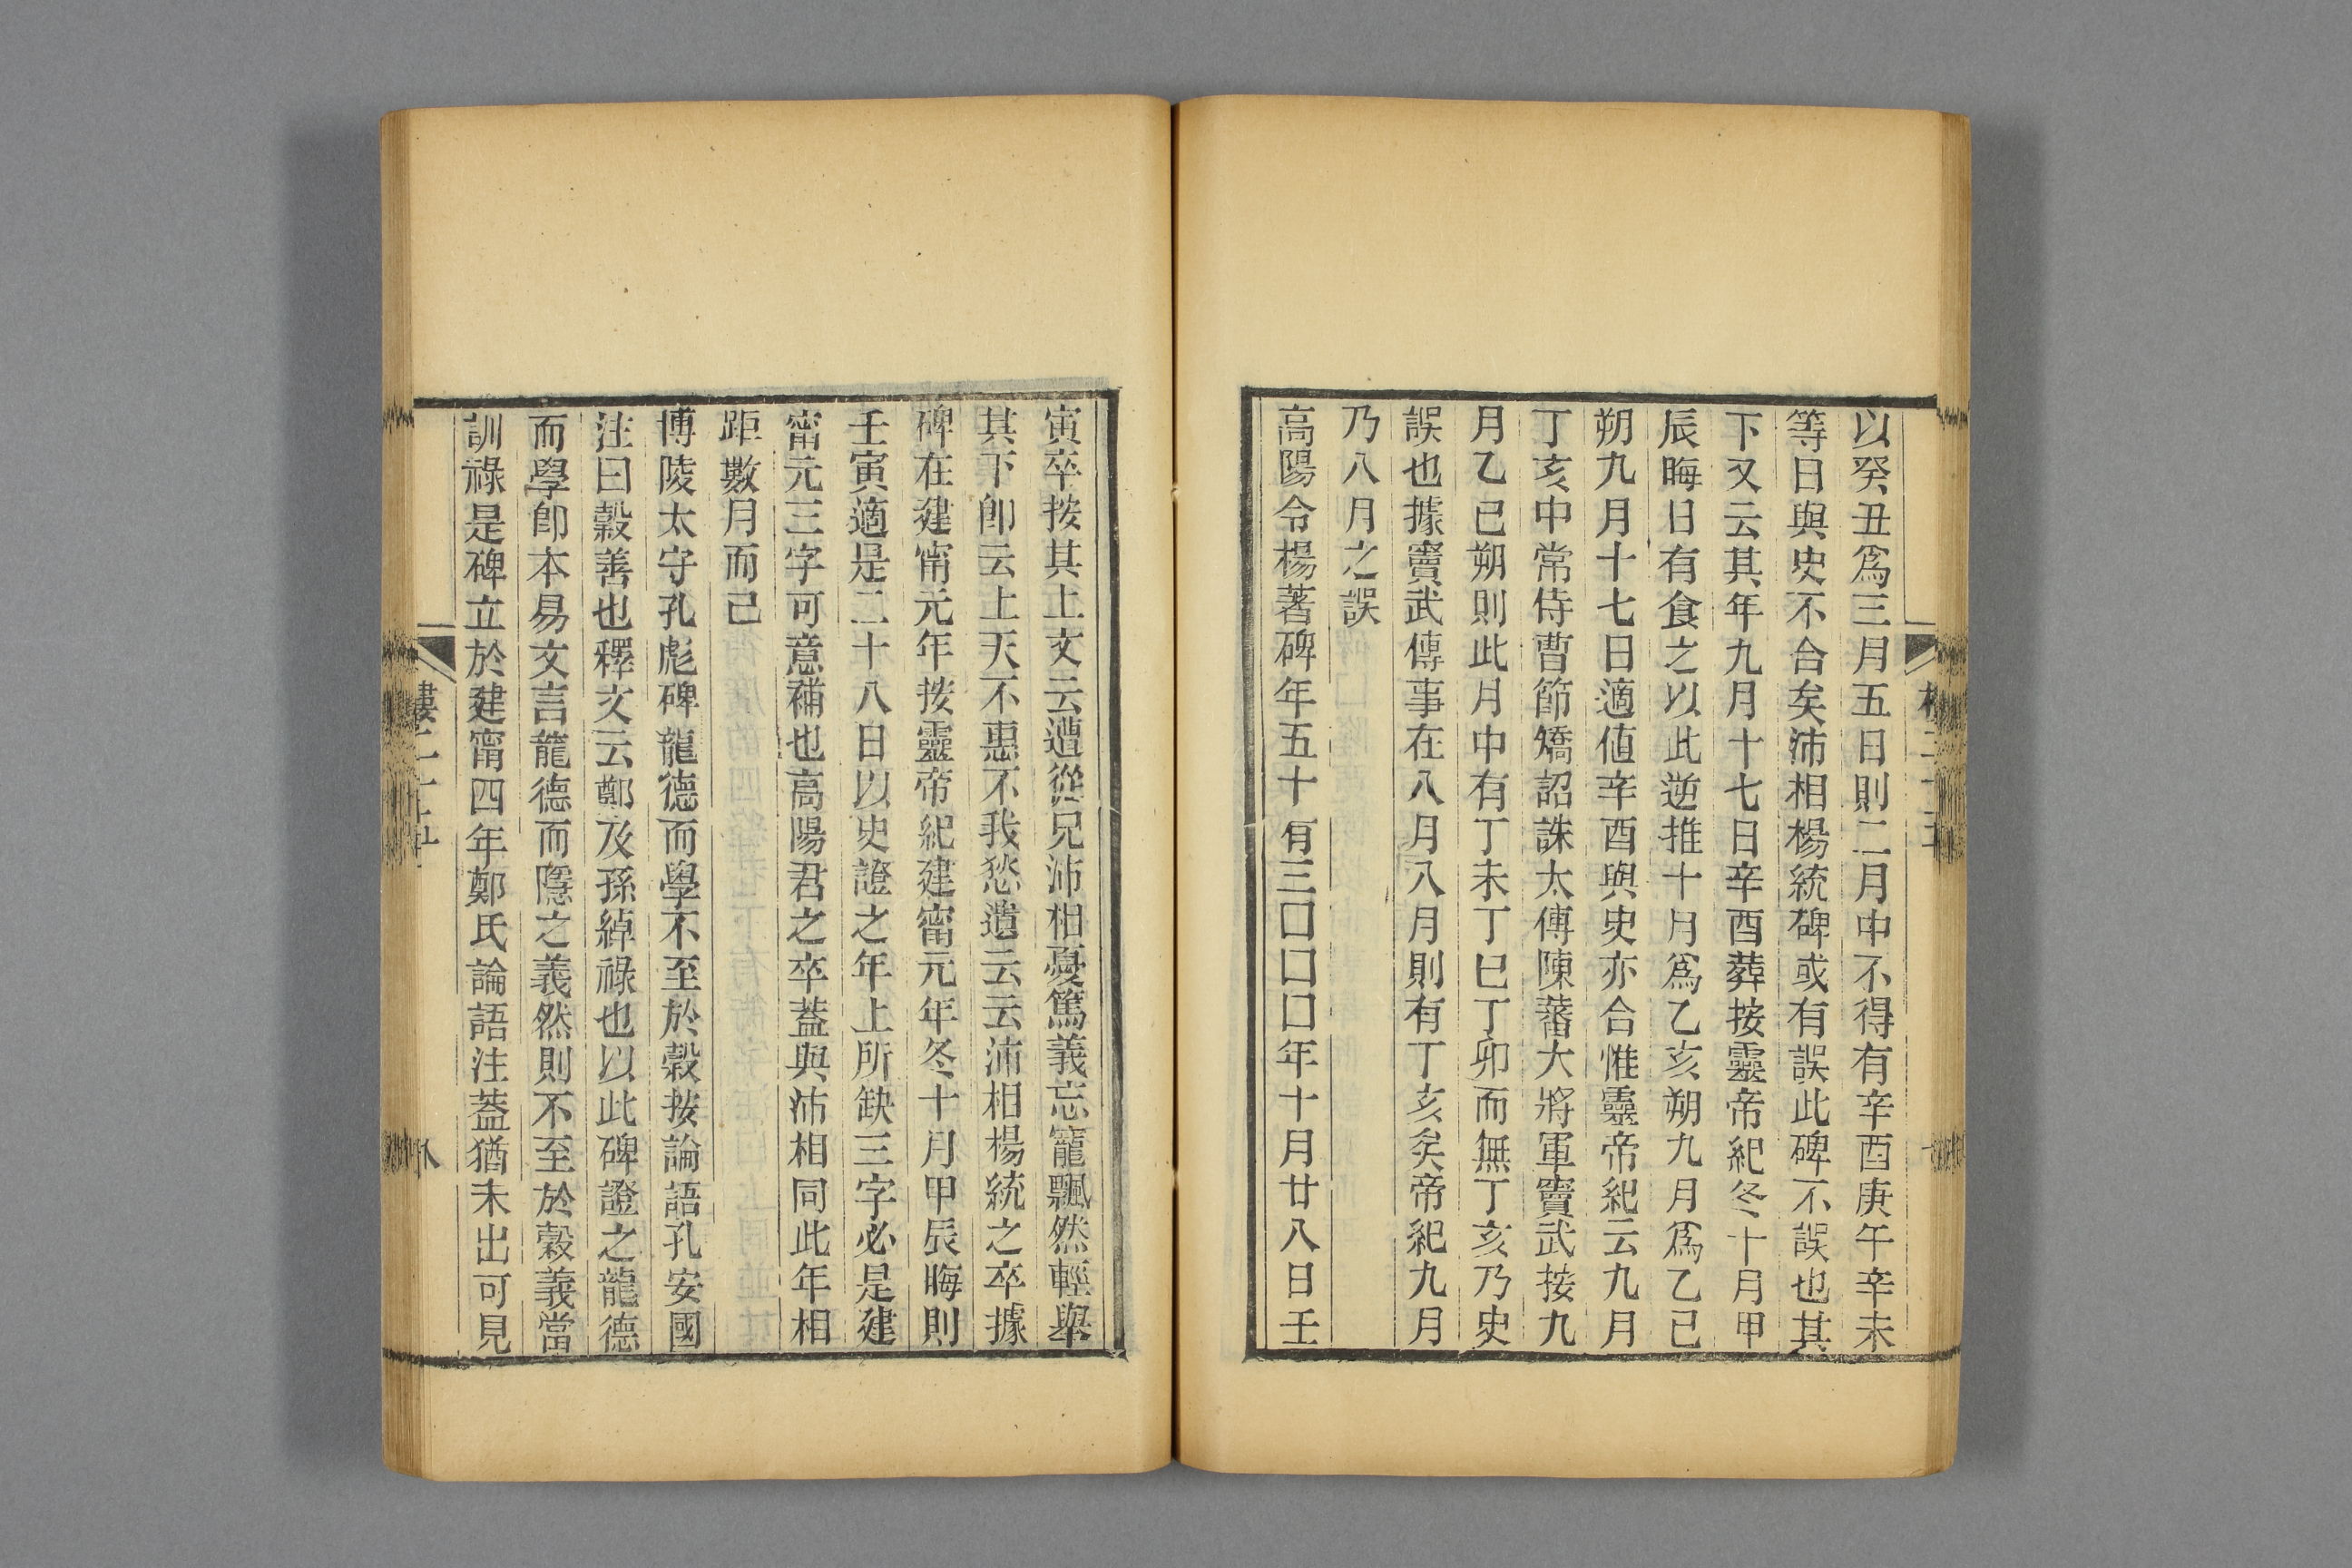 以癸丑爲三月五日則二月中不得有辛酉庚午辛未
等日與史不合矣沛相楊統碑或有誤此碑不誤也其
下又云其年九月十七日辛酉葬按靈帝紀冬十月甲
辰晦日有食之以此逆推十月爲乙亥朔九月爲乙巳
朔九月十七日適值辛酉與史亦合惟靈帝紀云九月
丁亥中常侍曹節矯詔誅太傅陳蕃大將軍竇武按九
月乙巳朔則此月中有丁未丁巳丁卯而無丁亥乃史
誤也據竇武傳事在八月八月則有丁亥矣帝紀九月
乃八月之誤
高陽令楊著碑年五十有三囗囗囗年十月廿八日壬
寅卒按其上文云遭從兄沛相憂篤義忘寵飄然輕舉
其下卽云上天不惠不我愸遺云云沛相楊統之卒據
碑在建甯元年按靈帝紀建甯元年冬十月甲辰晦則
壬寅適是二十八日以史證之年上所缺三字必是建
甯元三字可意補也高陽君之卒蓋與沛相同此年相
距數月而已
博陵太守孔彪碑龍德而學不至於穀按論語孔安國
注曰穀善也釋文云鄭及孫綽祿也以此碑證之龍德
而學卽本易文言龍德而隱之義然則不至於穀義當
訓祿是碑立於建甯四年鄭氏論語注蓋猶未出可見